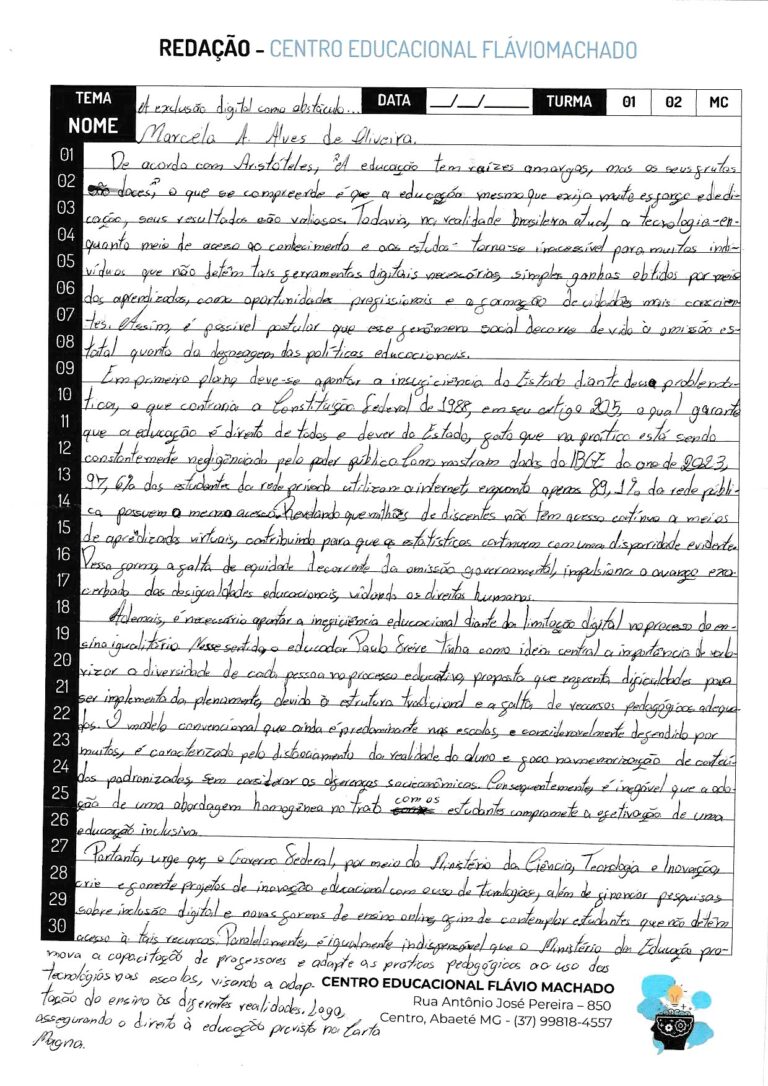 REDAÇÃO - CENTRO EDUCACIONAL FLÁVIOMACHADO
TEMA A exclusão digital como obstáculo... DATA __/__/____ TURMA 01 02 MC
NOME Marcela A. Alves de Oliveira.
01 De acordo com Aristóteles, "A educação tem raízes amargas, mas os seus frutos
02 são doces", o que se compreende é que a educação mesmo que exija muito esforço e dedi-
03 cação, seus resultados são valiosos. Todavia, na realidade brasileira atual, a tecnologia - en-
04 quanto meio de acesso ao conhecimento e aos estudos - torna-se inacessível para muitos indi-
05 víduos que não detêm tais ferramentas digitais necessárias, simples ganhos obtidos por meio
06 dos aprendizados, como oportunidades profissionais e a formação de cidadãos mais conscien-
07 tes. Assim, é possível postular que esse fenômeno social decorre devido à omissão es-
08 tatal quanto da defasagem das políticas educacionais.
09 Em primeiro plano deve-se apontar a insuficiência do Estado diante dessa problemá-
10 tica, o que contraria a Constituição Federal de 1988, em seu artigo 205, a qual garante
11 que a educação é direito de todos e dever do Estado, fato que na prática está sendo
12 constantemente negligênciado pelo poder público. Como mostram dados do IBGE do ano de 2023,
13 97,6% dos estudantes da rede privada utilizam a internet, enquanto apenas 89,1% da rede públi-
14 ca possuem o mesmo acesso. Revelando que milhões de discentes não têm acesso contínuo a meios
15 de aprendizados virtuais, contribuindo para que as estatísticas continuem com uma disparidade evidente.
16 Dessa forma, a falta de equidade decorrente da omissão governamental, impulsiona o avanço exa-
17 cerbado das desigualdades educacionais, violando os direitos humanos.
18 Ademais, é necessário apontar a ineficiência educacional diante da limitação digital no processo do en-
19 sino igualitário. Nesse sentido, o educador Paulo Freire tinha como ideia central a importância de valo-
20 rizar a diversidade de cada pessoa no processo educativo, proposta que enfrenta dificuldades para
21 ser implementada plenamente, devido à estrutura tradicional e a falta de recursos pedagógicos adequa-
22 dos. O modelo convencional que ainda é predominante nas escolas, e consideravelmente defendido por
23 muitos, é caracterizado pelo distanciamento da realidade do aluno e foco na memorização de conteú-
24 dos padronizados, sem considerar as diferenças socioeconômicas. Consequentemente, é inegável que a ado-
25 ção de uma abordagem homogênea no trato com os estudantes compromete a efetivação de uma
26 educação inclusiva.
27 Portanto, urge que, o Governo Federal, por meio do Ministério da Ciência, Tecnologia e Inovação,
28 crie e fomente projetos de inovação educacional com o uso de tecnologias, além de financiar pesquisas
29 sobre inclusão digital e novas formas de ensino online, afim de contemplar estudantes que não detêm
30 acesso à tais recursos. Paralelamente, é igualmente indispensável que o Ministério da Educação pro-
mova a capacitação de professores e adapte as práticas pedagógicas ao uso das
tecnologias nas escolas, visando a adap-
tação do ensino às diferentes realidades. Logo,
assegurando o direito à educação previsto na Carta
Magna.
CENTRO EDUCACIONAL FLÁVIO MACHADO
Rua Antônio José Pereira – 850
Centro, Abaeté MG - (37) 99818-4557